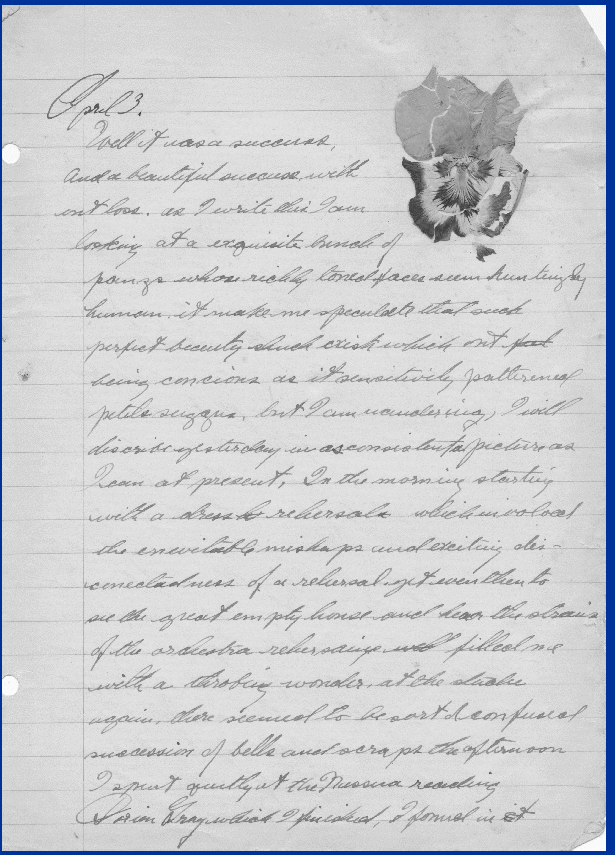 April 3.
Well it was a success,
and a beautiful success, with
out loss. as I write this I am
looking at a exquisite bunch of
panzs whose richly toned faces seem huntingly
human. it make me speculate that such
perfect beauty shuch exist which out
being concious as it sensitivily patterened
petils sugges, but I am wandering, I will
discribe yesterday in as consistent a picture as
I can at present. In the morning starting
with a dress rehersals which involved
the enevitable mishaps and exciting dis-
conectedness of a rehersal yet even then to
see the great empty house and hear the strains
of the orchestra rehersaing filled me
with a throbing wonder. at the
again, there seemed to be sort of confused
succession of bells and scraps the afternoon
I spent quitly at the reading
Dorian Gray which I finished, I found in it